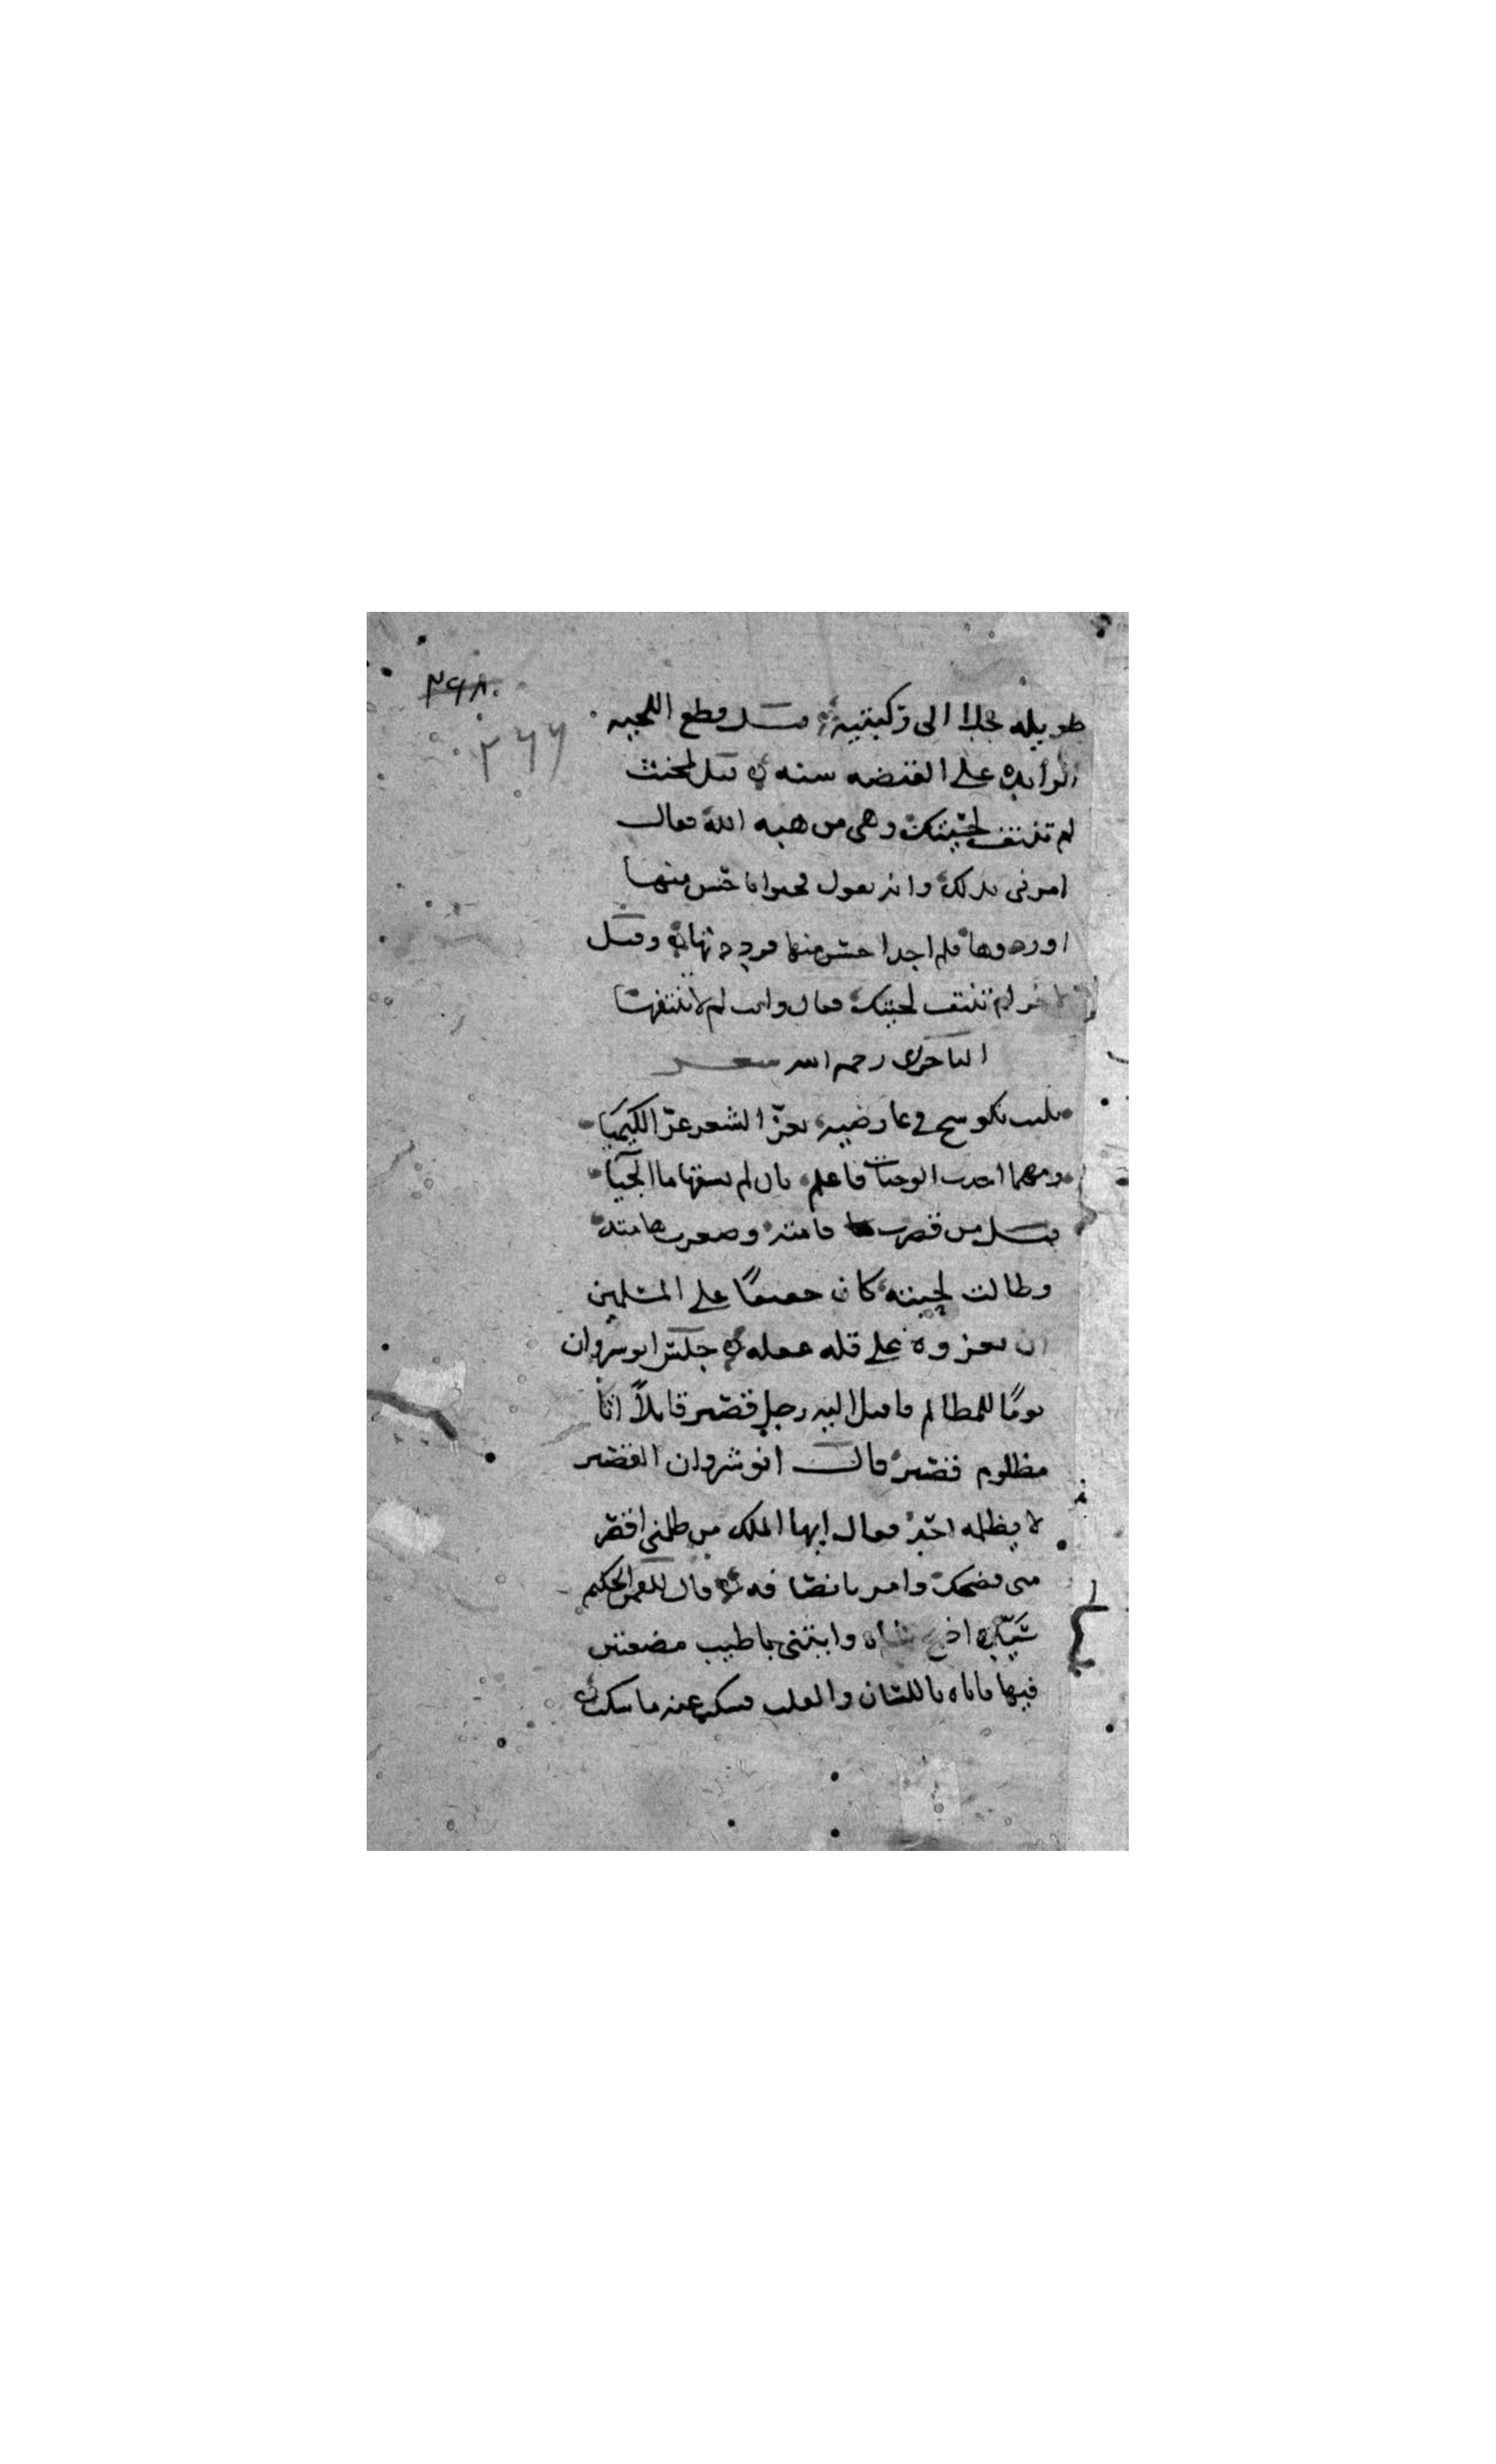 ٣٩٨
٢٦٦
طويله الى ركبتيه قيل قطع اللحيه
الزايده على القبضه سنه قيل لمخنث
لم تنتف لحيتك وهى من هبه الله فقال
امرنى بذلك وانه يقول فحيوا باحسن منها
او ردوها فلم اجد احسن منها فرددتها وقيل
لاخر لم تنتف لحيتك فقال وانت لم لا تنتفها
الباخرزى رحمه الله شعر
بكوسج فى عارضيه يعز الشعر عز الكيميا
ومهما اجدب الوجنات فاعلم بان لم يسقها ما الحيا
قيل من قصرت قامته وصغرت هامته
وطالت لحيته كان حقيقا على المسلمين
ان يعزوه على قله عقله جلس انوشروان
يوما للمظالم فاقبل اليه رجل قصير قايلا انا
مظلوم قصير قال انوشروان القصير
لا يظلمه احد فقال ايها الملك من ظلمنى اقصر
منى فضحك وامر بانصافه قال للقمن الحكيم
سيده اذبح شاه وايتنى باطيب مضغتين
فيها فاتاه باللسان والقلب فسكت عنه ما سكت